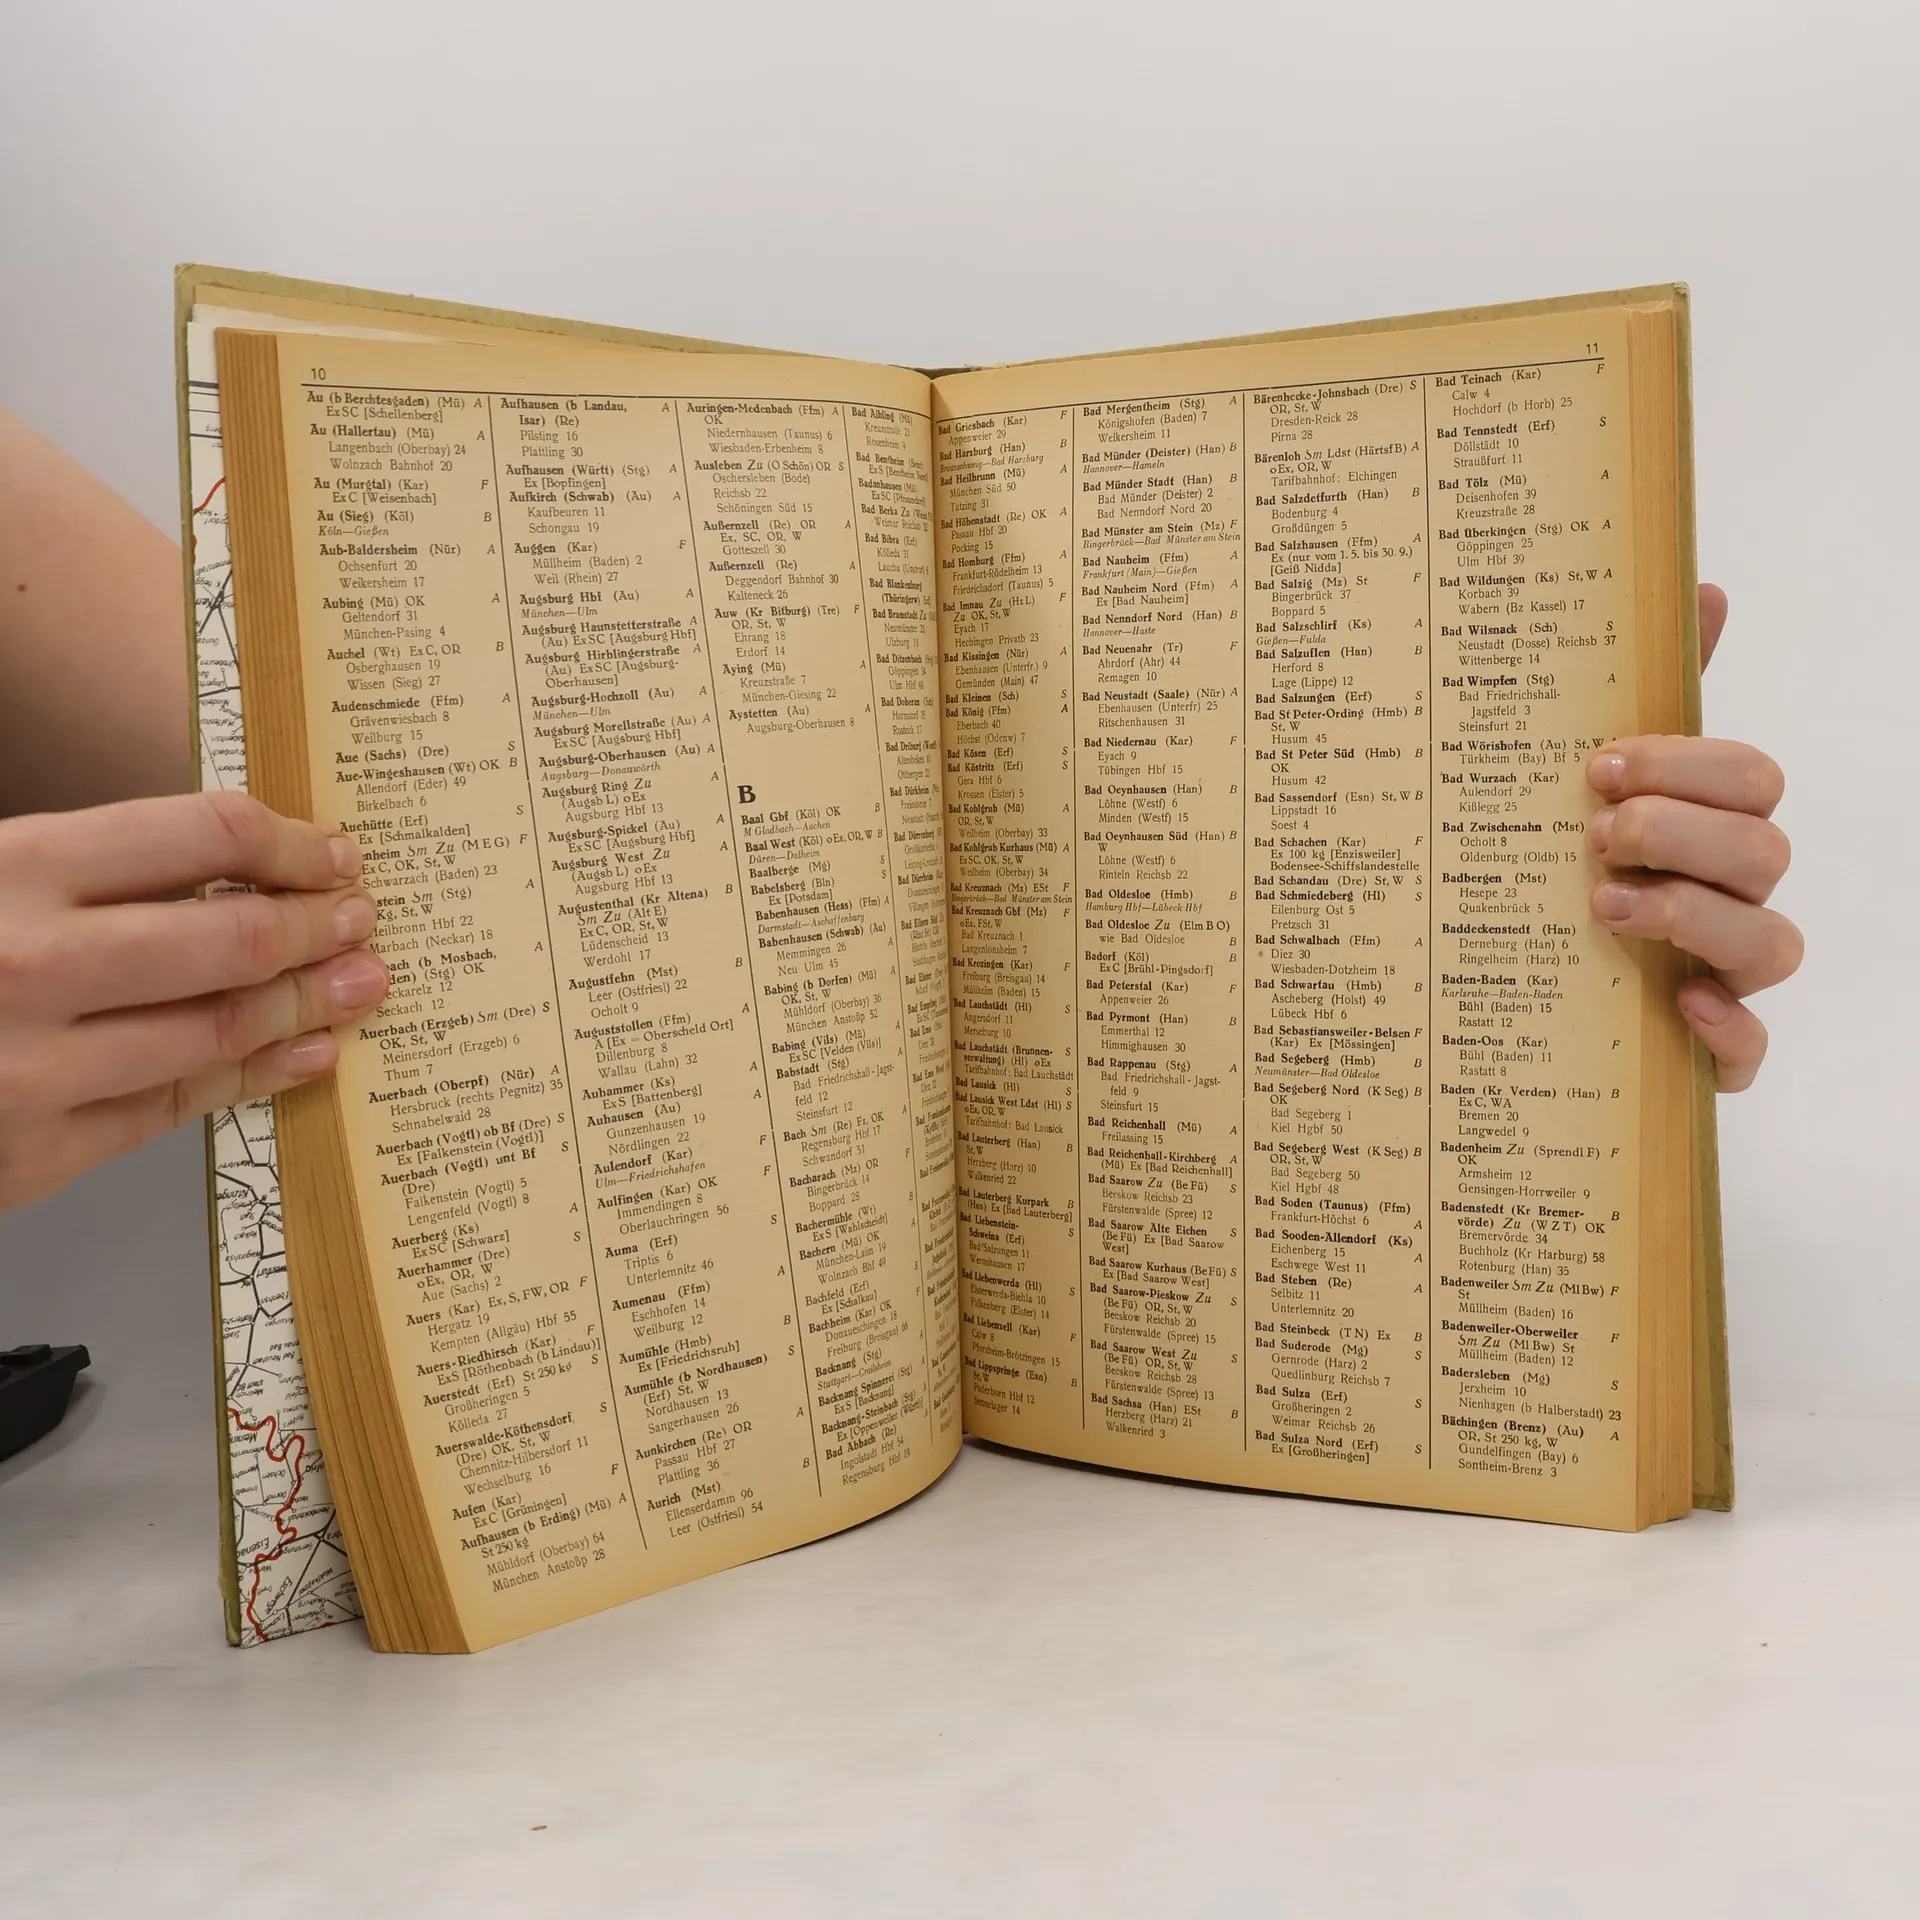 10
Au (b Berchtesgaden) (Mü) A
ExSC [Schellenberg]
Au (Hallertau) (Mü) A
Langenbach (Oberbay) 24
Wolnzach Bahnhof 20
Au (Murgtal) (Kar) F
ExC [Weisenbach]
Au (Sieg) (Köl) B
Köln—Gießen
Aub-Baldersheim (Nür) A
Ochsenfurt 20
Weikersheim 17
Aubing (Mü) OK A
Geltendorf 31
München-Pasing 4
Auchel (Wt) ExC, OR B
Osberghausen 19
Wissen (Sieg) 27
Audenschmiede (Ffm) A
Grävenwiesbach 8
Weilburg 15
Aue (Sachs) (Dre) S
Aue-Wingeshausen (Wt) OK B
Allendorf (Eder) 49
Birkelbach 6
Auehütte (Erf) S
Ex [Schmalkalden]
nheim Sm Zu (MEG) F
ExC, OK, St, W
Schwarzach (Baden) 23
stein Sm (Stg) A
Kg, St, W
Heilbronn Hbf 22
Marbach (Neckar) 18
bach (b Mosbach, A
den) (Stg) OK
eckarelz 12
Seckach 12
Auerbach (Erzgeb) Sm (Dre) S
OK, St, W
Meinersdorf (Erzgeb) 6
Thum 7
Auerbach (Oberpf) (Nür) A
Hersbruck (rechts Pegnitz) 35
Schnabelwaid 28
Auerbach (Vogtl) ob Bf (Dre) S
Ex [Falkenstein (Vogtl)]
Auerbach (Vogtl) unt Bf S
(Dre)
Falkenstein (Vogtl) 5
Lengenfeld (Vogtl) 8
Auerberg (Ks) A
ExSC [Schwarz]
Auerhammer (Dre) S
oEx, OR, W
Aue (Sachs) 2
Auers (Kar) Ex, S, FW, OR F
Hergatz 19
Kempten (Allgäu) Hbf 55
Auers-Riedhirsch (Kar) F
ExS [Röthenbach (b Lindau)]
Auerstedt (Erf) St 250 kg S
Großheringen 5
Kölleda 27
Auerswalde-Köthensdorf S
(Dre) OK, St, W
Chemnitz-Hilbersdorf 11
Wechselburg 16
Aufen (Kar) F
ExC [Grüningen]
Aufhausen (b Erding) (Mü) A
St 250 kg
Mühldorf (Oberbay) 64
München Anstoßp 28
Aufhausen (b Landau, A
Isar) (Re)
Pilsting 16
Plattling 30
Aufhausen (Württ) (Stg) A
Ex [Bopfingen]
Aufkirch (Schwab) (Au) A
Kaufbeuren 11
Schongau 19
Auggen (Kar) F
Müllheim (Baden) 2
Weil (Rhein) 27
Augsburg Hbf (Au) A
München—Ulm
Augsburg Haunstetterstraße A
(Au) ExSC [Augsburg Hbf]
Augsburg Hirblingerstraße A
(Au) ExSC [Augsburg-
Oberhausen]
Augsburg-Hochzoll (Au) A
München—Ulm
Augsburg Morellstraße (Au) A
ExSC [Augsburg Hbf]
Augsburg-Oberhausen (Au) A
Augsburg—Donauwörth
Augsburg Ring Zu A
(Augsb L) oEx
Augsburg Hbf 13
Augsburg-Spickel (Au) A
ExSC [Augsburg Hbf]
Augsburg West Zu A
(Augsb L) oEx
Augsburg Hbf 13
Augustenthal (Kr Altena) B
Sm Zu (Alt E)
ExC, OR, St, W
Lüdenscheid 13
Werdohl 17
Augustfehn (Mst) B
Leer (Ostfriesl) 22
Ocholt 9
Auguststollen (Ffm) A
A [Ex = Oberscheld Ort]
Dillenburg 8
Wallau (Lahn) 32
Auhammer (Ks) A
ExS [Battenberg]
Auhausen (Au) A
Gunzenhausen 19
Nördlingen 22
Aulendorf (Kar) F
Ulm—Friedrichshafen
Aulfingen (Kar) OK F
Immendingen 8
Oberlauchringen 56
Auma (Erf) S
Triptis 6
Unterlemnitz 46
Aumenau (Ffm) A
Eschhofen 14
Weilburg 12
Aumühle (Hmb) B
Ex [Friedrichsruh]
Aumühle (b Nordhausen) S
(Erf) St, W
Nordhausen 13
Sangerhausen 26
Aunkirchen (Re) OR A
Passau Hbf 27
Plattling 36
Aurich (Mst) B
Ellenserdamm 96
Leer (Ostfriesl) 54
Auringen-Medenbach (Ffm) A
OK
Niedernhausen (Taunus) 6
Wiesbaden-Erbenheim 8
Ausleben Zu (O Schön) OR S
Oschersleben (Bode)
Reichsb 22
Schöningen Süd 15
Außernzell (Re) OR A
Ex, SC, OR, W
Gotteszell 30
Außernzell (Re) A
Deggendorf Bahnhof 30
Kalteneck 26
Auw (Kr Bitburg) (Tre) F
OR, St, W
Ehrang 18
Erdorf 14
Aying (Mü) A
Kreuzstraße 7
München-Giesing 22
Aystetten (Au) A
Augsburg-Oberhausen 8
B
Baal Gbf (Köl) OK B
M Gladbach—Aachen
Baal West (Köl) oEx, OR, W B
Düren—Dalheim
Baalberge (Mg) S
Babelsberg (Bln) S
Ex [Potsdam]
Babenhausen (Hess) (Ffm) A
Darmstadt—Aschaffenburg
Babenhausen (Schwab) (Au) A
Memmingen 26
Neu Ulm 45
Babing (b Dorfen) (Mü) A
OK, St, W
Mühldorf (Oberbay) 36
München Anstoßp 52
Babing (Vils) (Mü) A
ExSC [Velden (Vils)]
Babstadt (Stg) A
Bad Friedrichshall-Jagst-
feld 12
Steinsfurt 12
Bach Sm (Re) Fr, OK A
Regensburg Hbf 17
Schwandorf 51
Bacharach (Mz) OR F
Bingerbrück 14
Boppard 28
Bachermühle (Wt) B
ExS [Wahlscheidt]
Bachern (Mü) OK A
München-Laim 19
Wolnzach Bhf 49
Bachfeld (Erf) S
Ex [Schalkau]
Bachheim (Kar) OK F
Donaueschingen 18
Freiburg (Breisgau) 66
Backnang (Stg) A
Stuttgart—Crailsheim
Backnang Spinnerei (Stg) A
ExS [Backnang]
Backnang-Steinbach (Stg) A
Ex [Oppenweiler (Württ)]
Bad Abbach (Re)
Ingolstadt Hbf 54
Regensburg Hbf 19
Bad Aibling (Mü)
Kreuzstraße 21
Rosenheim 9
Bad Bentheim
Bad Berka Zu
Bad Bibra (Erf)
Kölleda 31
Bad Blankenburg
(Thüringerw) Erf
Bad Bramstedt Zu
Neumünster
Ulzburg 18
Bad Ditzenbach
Göppingen
Ulm Hbf
Bad Doberan
Rostock 17
Bad Driburg (Westf)
Altenbeken
Ottbergen 22
Bad Dürkheim
Freinsheim 7
Bad Dürrenberg
Bad Dürrheim
11
Bad Griesbach (Kar) F
Appenweier 29
Bad Harzburg (Han) B
Braunschweig—Bad Harzburg
Bad Heilbrunn (Mü) A
München Süd 50
Tutzing 31
Bad Höhenstadt (Re) OK A
Passau Hbf 20
Pocking 15
Bad Homburg (Ffm) A
Frankfurt-Rödelheim 13
Friedrichsdorf (Taunus) 5
Bad Imnau Zu (HzL) F
Zu OK, St, W
Eyach 17
Hechingen Privatb 23
Bad Kissingen (Nür) A
Ebenhausen (Unterfr.) 9
Gemünden (Main) 47
Bad Kleinen (Sch) S
Bad König (Ffm) A
Eberbach 40
Höchst (Odenw) 7
Bad Kösen (Erf) S
Bad Köstritz (Erf) S
Gera Hbf 6
Krossen (Elster) 5
Bad Kohlgrub (Mü) A
OR, St, W
Weilheim (Oberbay) 33
Bad Kohlgrub Kurhaus (Mü) A
ExSC, OK, St, W
Weilheim (Oberbay) 34
Bad Kreuznach (Mz) ESt F
Bingerbrück—Bad Münster am Stein
Bad Kreuznach Gbf (Mz) F
oEx, FSt, W
Bad Kreuznach 1
Langenlonsheim 7
Bad Krozingen (Kar) F
Freiburg (Breisgau) 14
Müllheim (Baden) 15
Bad Lauchstädt (Hl) S
Angersdorf 11
Merseburg 10
Bad Lauchstädt (Brunnen- S
verwaltung) (Hl) oEx
Tarifbahnhof: Bad Lauchstädt
Bad Lausick (Hl) S
Bad Lausick West Ldst (Hl) S
oEx, OR, W
Tarifbahnhof: Bad Lausick
Bad Lauterberg (Han) B
St, W
Herzberg (Harz) 10
Walkenried 22
Bad Lauterberg Kurpark B
(Han) Ex [Bad Lauterberg]
Bad Liebenstein- S
Schweina (Erf)
Bad Salzungen 11
Wernshausen 17
Bad Liebenwerda (Hl) S
Elsterwerda-Biehla 10
Falkenberg (Elster) 14
Bad Liebenzell (Kar) F
Calw 8
Pforzheim-Brötzingen 15
Bad Lippspringe (Esn) B
St, W
Paderborn Hbf 12
Sennelager 14
Bad Mergentheim (Stg) A
Königshofen (Baden) 7
Weikersheim 11
Bad Münder (Deister) (Han) B
Hannover—Hameln
Bad Münder Stadt (Han) B
Bad Münder (Deister) 2
Bad Nenndorf 20
Bad Münster am Stein (Mz) F
Bingerbrück—Bad Münster am Stein
Bad Nauheim (Ffm) A
Frankfurt (Main)—Gießen
Bad Nauheim Nord (Ffm) A
Ex [Bad Nauheim]
Bad Nenndorf Nord (Han) B
Hannover—Haste
Bad Neuenahr (Tr) F
Ahrdorf (Ahr) 44
Remagen 10
Bad Neustadt (Saale) (Nür) A
Ebenhausen (Unterfr) 25
Ritschenhausen 31
Bad Niedernau (Kar) F
Eyach 9
Tübingen Hbf 15
Bad Oeynhausen (Han) B
Löhne (Westf) 6
Minden (Westf) 15
Bad Oeynhausen Süd (Han) B
W
Löhne (Westf) 6
Rinteln Reichsb 22
Bad Oldesloe (Hmb) B
Hamburg Hbf—Lübeck Hbf
Bad Oldesloe Zu (Elm B O)
wie Bad Oldesloe B
Badorf (Köl) B
ExC [Brühl-Pingsdorf]
Bad Peterstal (Kar) F
Appenweier 26
Bad Pyrmont (Han) B
Emmerthal 12
Himmighausen 30
Bad Rappenau (Stg) A
Bad Friedrichshall-Jagst-
feld 9
Steinsfurt 15
Bad Reichenhall (Mü) A
Freilassing 15
Bad Reichenhall-Kirchberg A
(Mü) Ex [Bad Reichenhall]
Bad Saarow Zu (Be Fü) S
Beeskow Reichsb 23
Fürstenwalde (Spree) 12
Bad Saarow Alte Eichen S
(Be Fü) Ex [Bad Saarow
West]
Bad Saarow Kurhaus (Be Fü) S
Ex [Bad Saarow West]
Bad Saarow-Pieskow Zu S
(Be Fü) OR, St, W
Beeskow Reichsb 20
Fürstenwalde (Spree) 15
Bad Saarow West Zu S
(Be Fü) OR, St, W
Beeskow Reichsb 28
Fürstenwalde (Spree) 13
Bad Sachsa (Han) ESt B
Herzberg (Harz) 21
Walkenried 3
Bärenhecke-Johnsbach (Dre) S
OR, St, W
Dresden-Reick 28
Pirna 28
Bärenloh Sm Ldst (HürtsfB) A
oEx, OR, W
Tarifbahnhof: Elchingen
Bad Salzdetfurth (Han) B
Bodenburg 4
Großdüngen 5
Bad Salzhausen (Ffm) A
Ex (nur vom 1.5. bis 30.9.)
[Geiß Nidda]
Bad Salzig (Mz) St F
Bingerbrück 37
Boppard 5
Bad Salzschlirf (Ks) A
Gießen—Fulda
Bad Salzuflen (Han) B
Herford 8
Lage (Lippe) 12
Bad Salzungen (Erf) S
Bad St Peter-Ording (Hmb) B
St, W
Husum 45
Bad St Peter Süd (Hmb) B
OK
Husum 42
Bad Sassendorf (Esn) St, W B
Lippstadt 16
Soest 4
Bad Schachen (Kar) F
Ex 100 kg [Enzisweiler]
Bodensee-Schiffslandestelle
Bad Schandau (Dre) St, W S
Bad Schmiedeberg (Hl) S
Eilenburg Ost 5
Pretzsch 31
Bad Schwalbach (Ffm) A
Diez 30
Wiesbaden-Dotzheim 18
Bad Schwartau (Hmb) B
Ascheberg (Holst) 49
Lübeck Hbf 6
Bad Sebastiansweiler-Belsen F
(Kar) Ex [Mössingen]
Bad Segeberg (Hmb) B
Neumünster—Bad Oldesloe
Bad Segeberg Nord (K Seg) B
OK
Bad Segeberg 1
Kiel Hgbf 50
Bad Segeberg West (K Seg) B
OR, St, W
Bad Segeberg 50
Kiel Hgbf 48
Bad Soden (Taunus) (Ffm)
Frankfurt-Höchst 6 A
Bad Sooden-Allendorf (Ks)
Eichenberg 15 A
Eschwege West 11
Bad Steben (Re) A
Selbitz 11
Unterlemnitz 20
Bad Steinbeck (T N) Ex B
Bad Suderode (Mg) S
Gernrode (Harz) 2
Quedlinburg Reichsb 7
Bad Sulza (Erf) S
Großheringen 2
Weimar Reichsb 26
Bad Sulza Nord (Erf) S
Ex [Großheringen]
Bad Teinach (Kar) F
Calw 4
Hochdorf (b Horb) 25
Bad Tennstedt (Erf) S
Döllstädt 10
Straußfurt 11
Bad Tölz (Mü) A
Deisenhofen 39
Kreuzstraße 28
Bad Überkingen (Stg) OK A
Göppingen 25
Ulm Hbf 39
Bad Wildungen (Ks) St, W A
Korbach 39
Wabern (Bz Kassel) 17
Bad Wilsnack (Sch) S
Neustadt (Dosse) Reichsb 37
Wittenberge 14
Bad Wimpfen (Stg) A
Bad Friedrichshall-
Jagstfeld 3
Steinsfurt 21
Bad Wörishofen (Au) St, W A
Türkheim (Bay) Bf 5
Bad Wurzach (Kar)
Aulendorf 29
Kißlegg 25
Bad Zwischenahn (Mst)
Ocholt 8
Oldenburg (Oldb) 15
Badbergen (Mst)
Hesepe 23
Quakenbrück 5
Baddeckenstedt (Han)
Derneburg (Han) 6
Ringelheim (Harz) 10
Baden-Baden (Kar) F
Karlsruhe—Baden-Baden
Bühl (Baden) 15
Rastatt 12
Baden-Oos (Kar) F
Bühl (Baden) 11
Rastatt 8
Baden (Kr Verden) (Han) B
ExC, WA
Bremen 20
Langwedel 9
Badenheim Zu (Sprendl F) F
OK
Armsheim 12
Gensingen-Horrweiler 9
Badenstedt (Kr Bremer- B
vörde) Zu (W Z T) OK
Bremervörde 34
Buchholz (Kr Harburg) 58
Rotenburg (Han) 35
Badenweiler Sm Zu (Ml Bw) F
St
Müllheim (Baden) 16
Badenweiler-Oberweiler F
Sm Zu (Ml Bw) St
Müllheim (Baden) 12
Badersleben (Mg) S
Jerxheim 10
Nienhagen (b Halberstadt) 23
Bächingen (Brenz) (Au) A
OR, St 250 kg, W
Gundelfingen (Bay) 6
Sontheim-Brenz 3